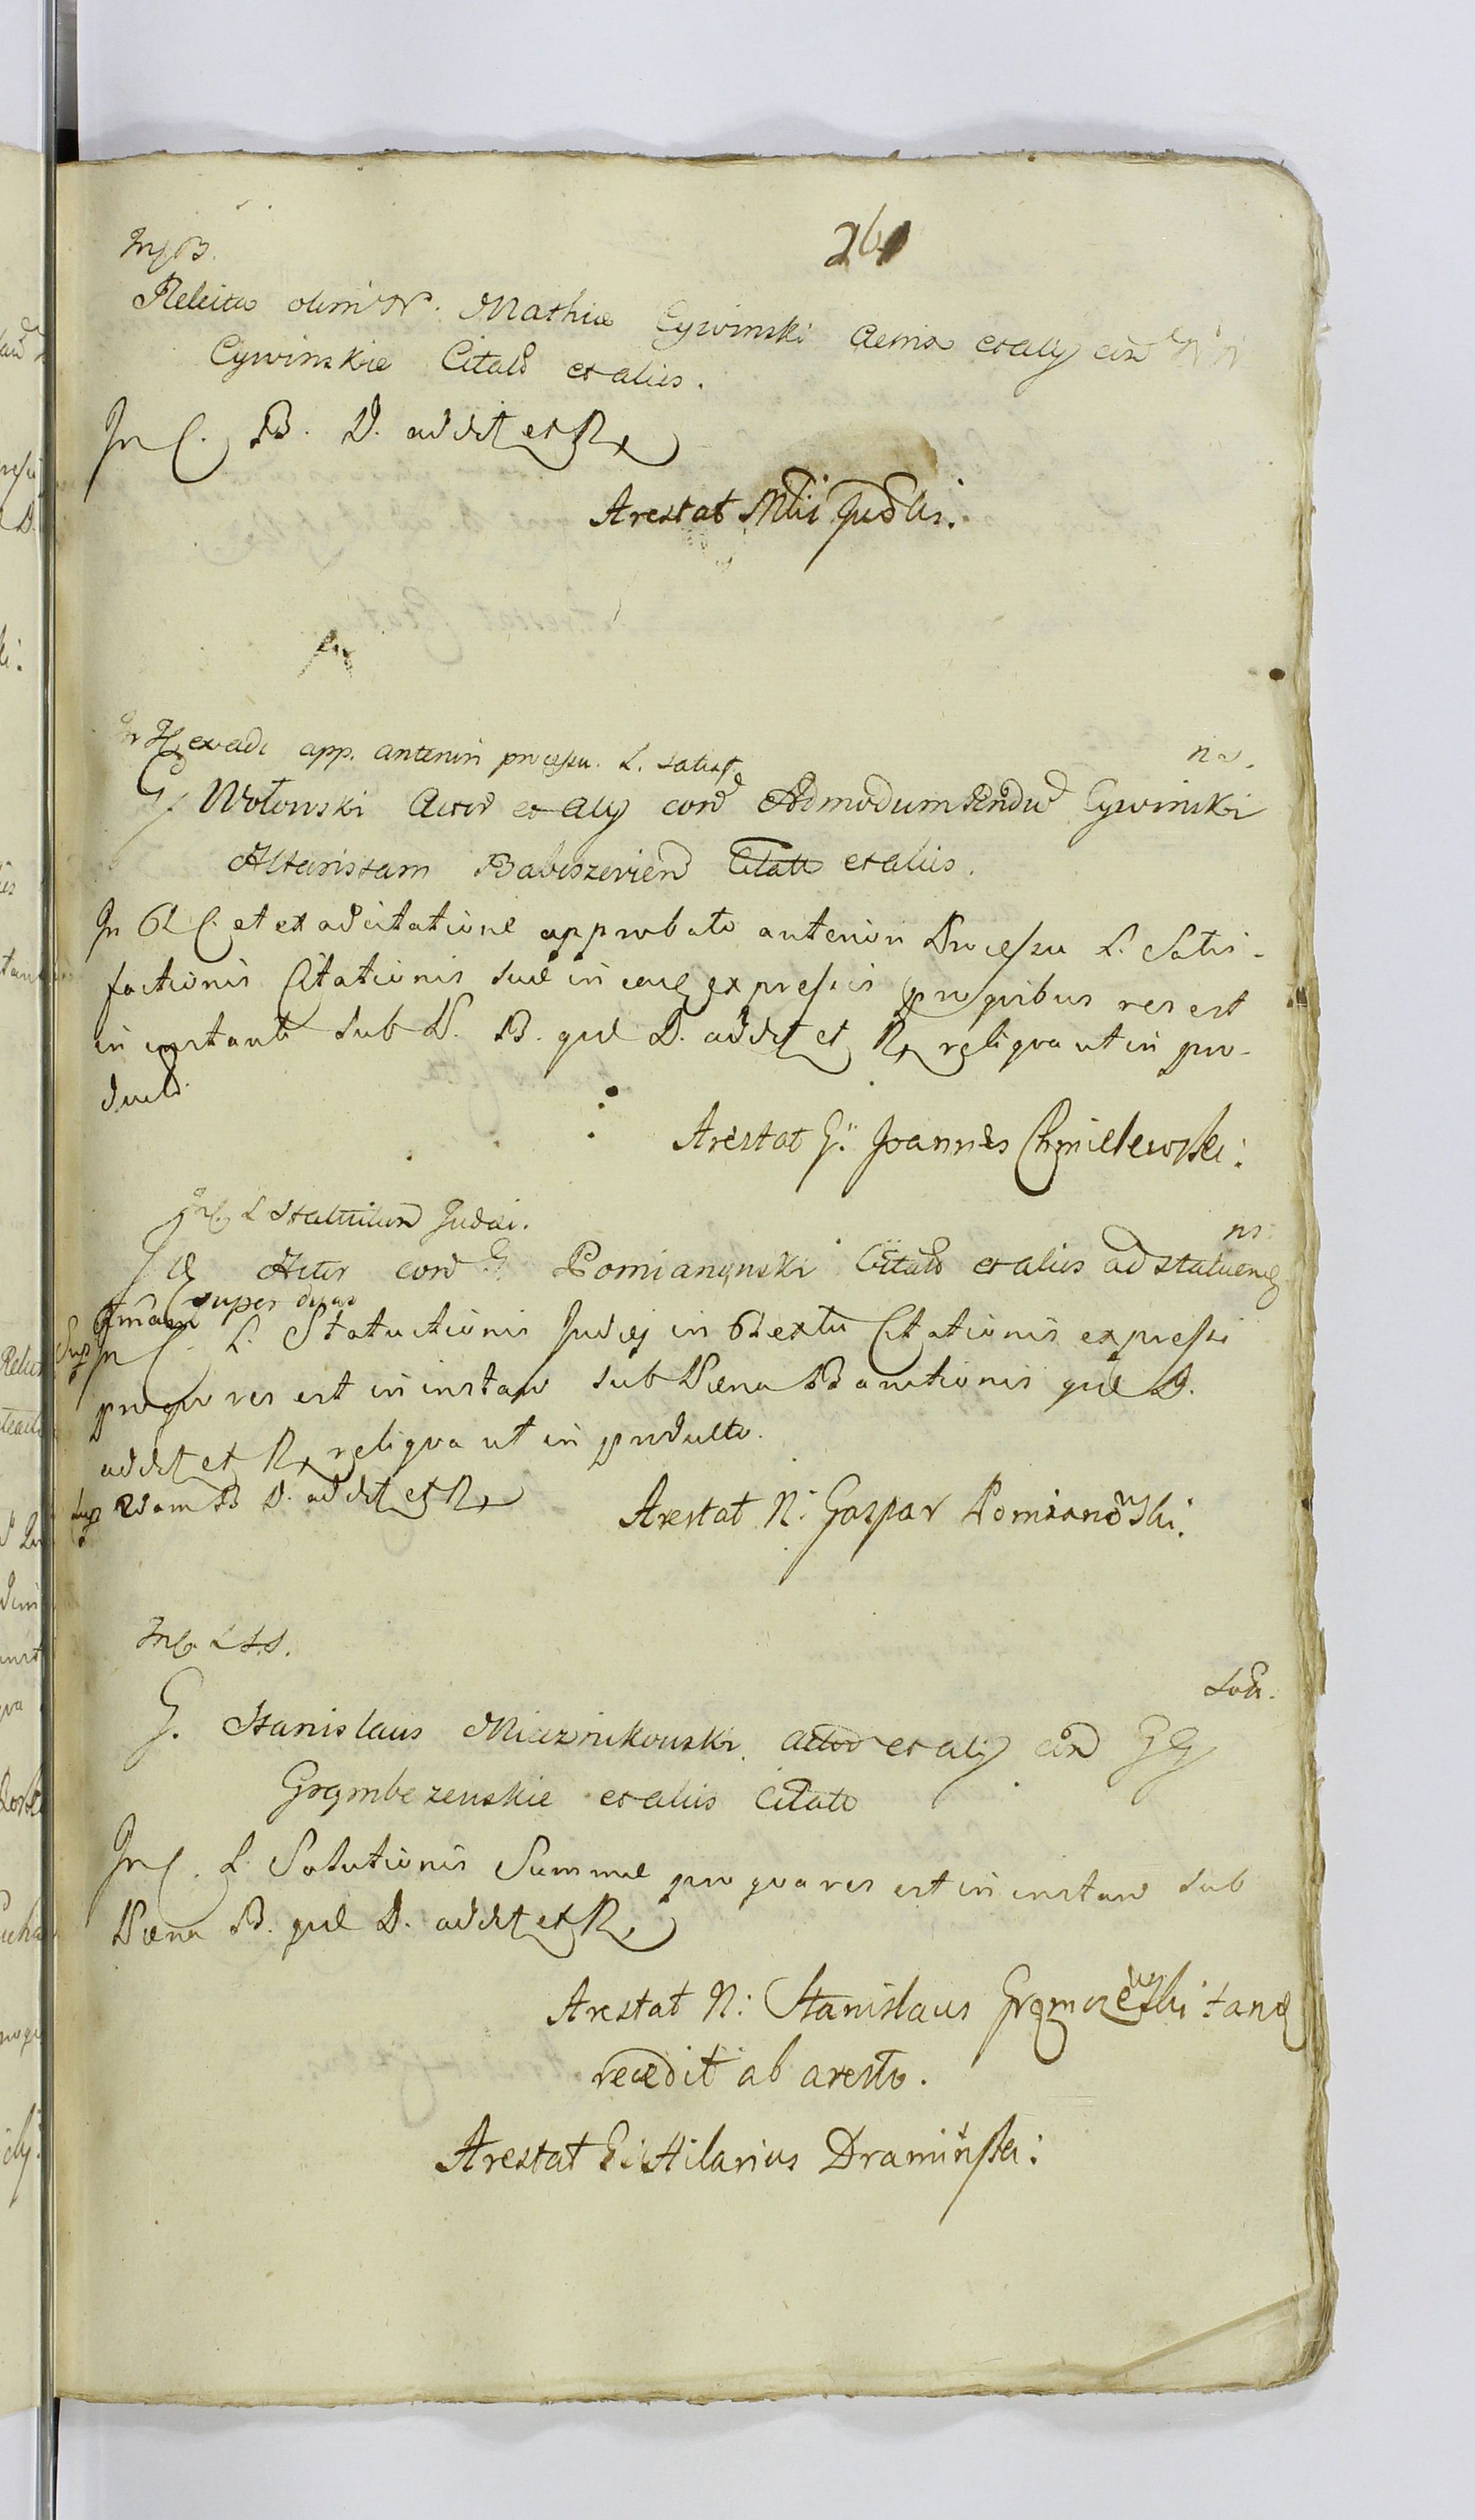 261
In C. B.
Relicta olim N. Mathiæ Cywinski Actrix et alij con N N
Cywinskie Citatt et aliis.
In C. B. D. addit et R
Arestat Mtis Judlis.
app. anteriri processu. L. satisf
na.
G Wołowski Actor et alij con Admodum Rndū Cywinski
Altaristam Baboszevien Citatt et aliis.
In C. et ex adcitatione approbato anteriori Processu L. Satis-
factionis Citationis suæ in eaq expressis pro quibus res est
in instanti sub P. B. que D. addit et R reliqva ut in pro-
ducto.
Arestat G: Joannes Chmielewski:
In C. L Statuitione Judæi.
ns.
Actor con G Pomianynski Citatt et aliis ad statuend
super duas
Sup In C. L. Statuitionis Judæj in Contextu Citationis expressi
pro quo res est in instan sub Pæna Bannitionis que D.
addit et R reliqva ut in producto.
Sup 2dam B D. addit et R
Arestat N: Gaspar Pomianowski.
In C. L S.S.
Soch.
G. Stanislaus Miecznikowski actor et alij con GG
Grąmbczewskie et aliis Citato
In C. L. Solutionis Summæ pro qva res est in instan sub
Pæna B. que D. addit et R
Arestat N: Stanislaus Grąmczewski tand
recedit ab aresto.
Arestat G: Hilarius Dramiński: